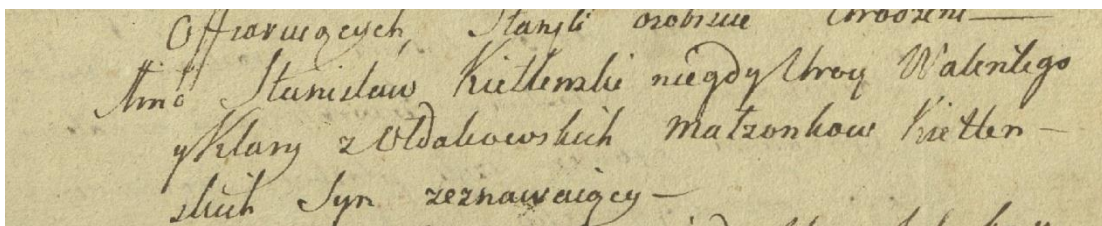 Offiaruiących, Stanęli osobiscie Urodzeni —
Imo Stanisław Kietlenski niegdy Uroą Walentego
y Klary z Ołdakowskich Małzonkow Kietlen —
skich Syn zeznawaiący —